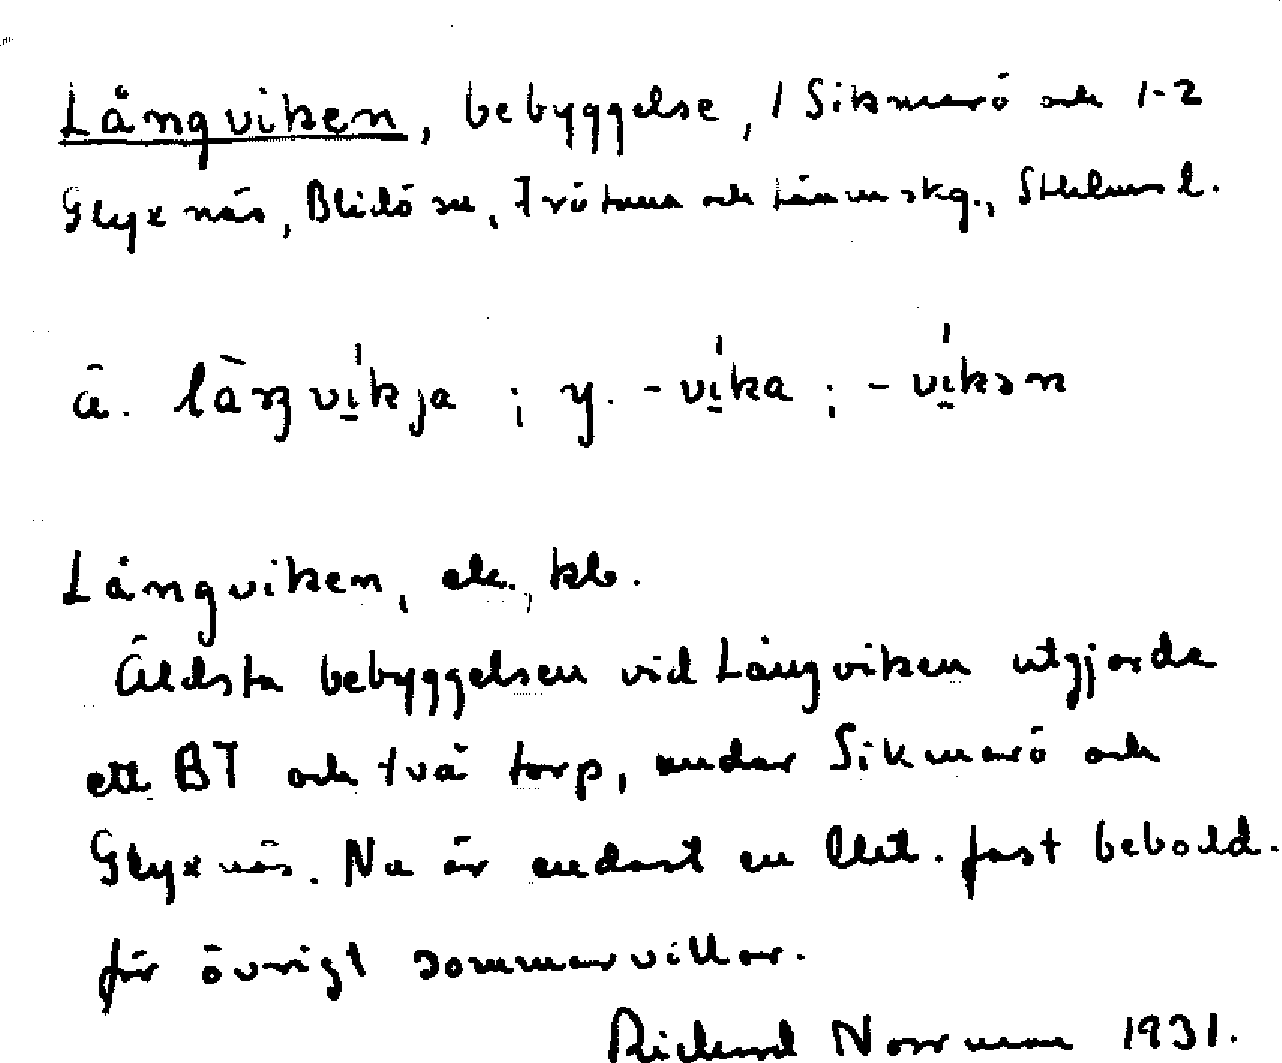 Långviken, bebyggelse, 1 Sikmarö och 1-2
Glyxnäs, Blidö sn, Frötuna och Länna skg., Sthlms l.
ä. làŋvi̱kja ; y. -vi̱ka ; -vi̱kən
Långviken, ek., kb.
Äldsta bebyggelsen vid Långviken utgjorde
ett BT och två torp, under Sikmarö och
Glyxnäs. Nu är endast en fast bebodd.
för övrigt sommarvillor.
Rickard Norrman 1931.